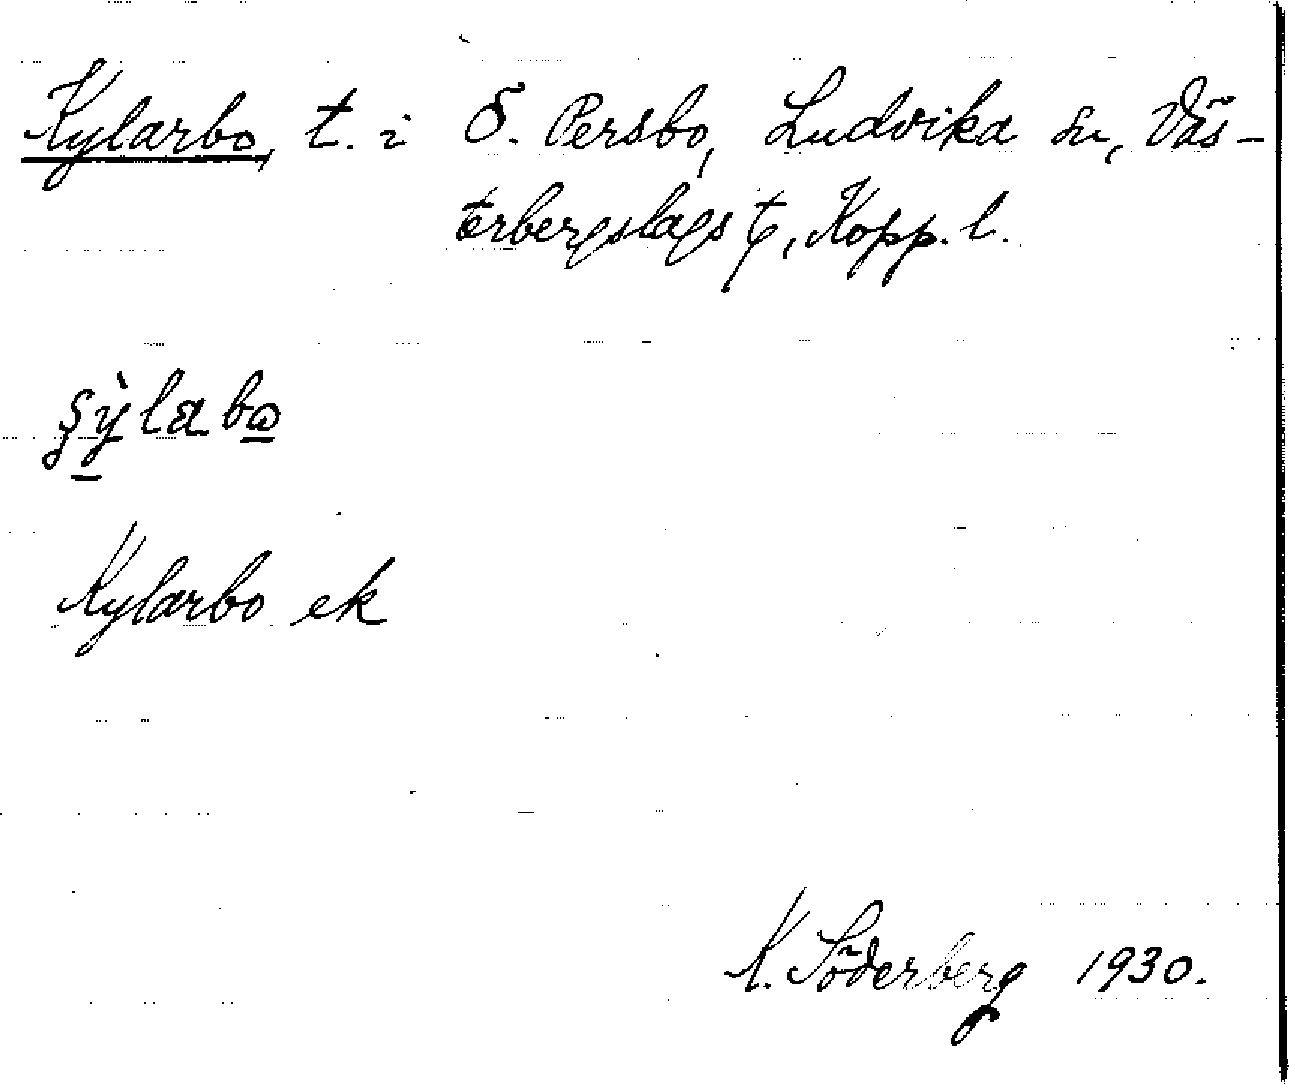 Kylarbo, t. i Ö. Persbo, Ludvika sn, Väs-
terbergslags tg, Kopp. l.
ş̀ylabω
Kylarbo ek
K. Söderberg 1930.